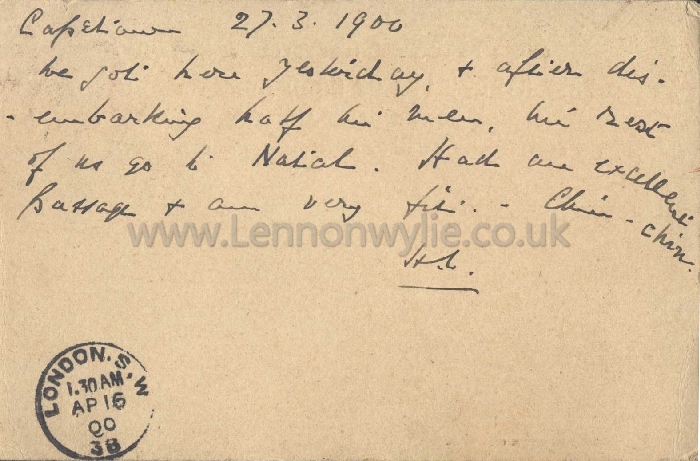 Capetown 27.3.1900
We got here yesterday, & after dis-
-embarking half the men, the rest
of us go to Natal. Had an excellent
Passage & am very fit. - Chin-chin.
www.Lennonwylie.co.uk
LONDON.S.W
1.30AM
AP16
00
38